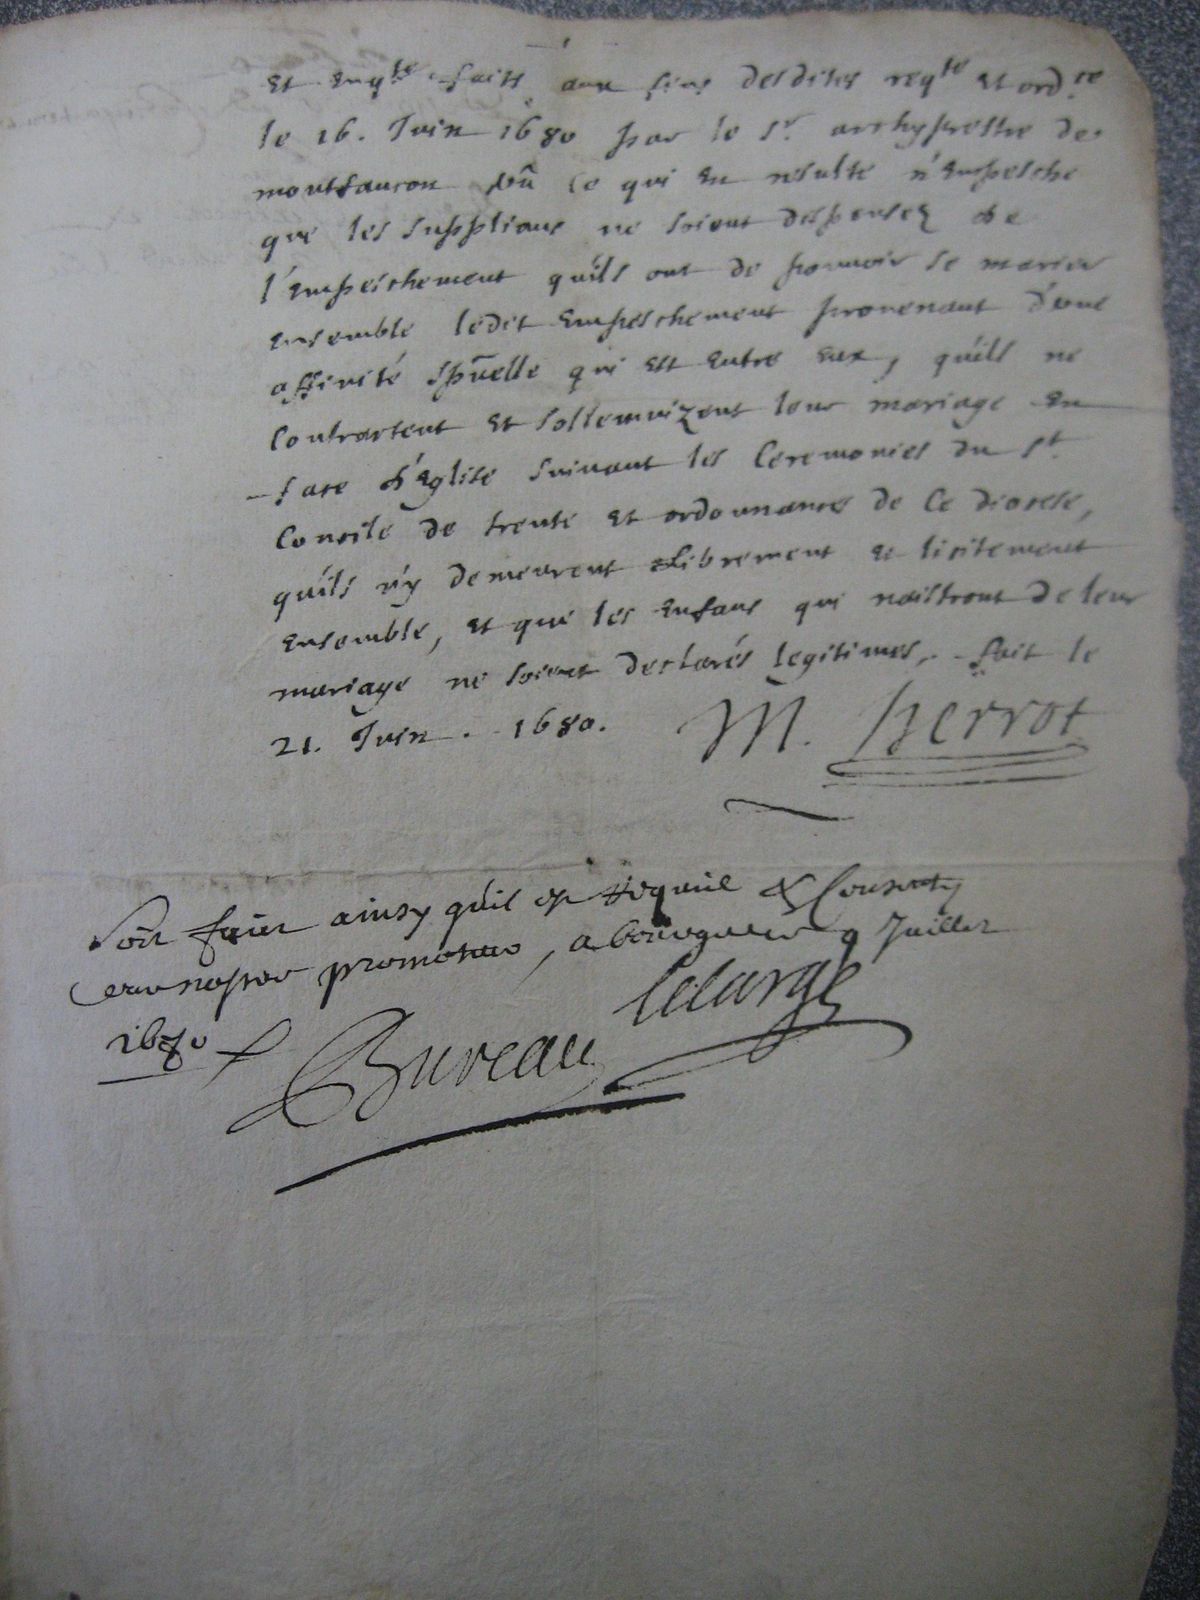 et enqte faits aux fins desdites reqte et ordce
le 16. Juin 1680 par le Sr. archyprestre de
montfaucon vû ce qui en resulte n'empesche
que les supplians ne soient dispensez de
l'empeschement quils ont de pouvoir se marier
ensemble ledit empeschement provenant d'une
affinité spũelle qui est entre eux, quils ne
contractent et sollemnizent leur mariage en
face d'Eglise suivant les Ceremonies du St
Concile de trente et ordonnances de Ce diocese,
quils n'y demeurent librement et licitement
ensemble, et que les enfans qui naistront de leur
mariage ne soient declarés legitimes,. fait le
21. Juin . 1680. M. Perrot
Soit faict ainsy quil est requis & Consenty
par nostre promoteur, a bourges le 9 Juillet
1680 Bureau Lelarge